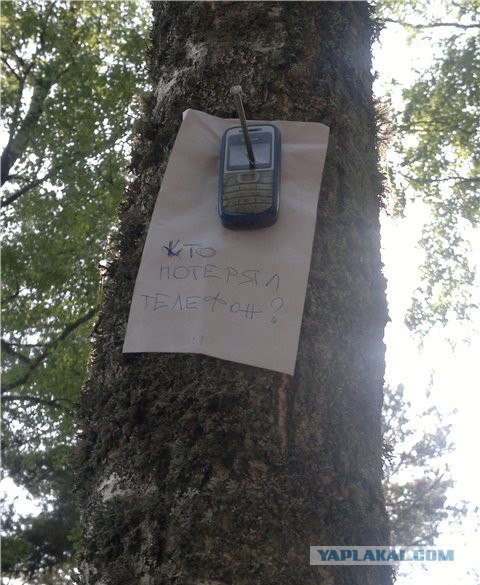 КТО
ПОТЕРЯЛ
ТЕЛЕФОН?
YAPLAKAL.COM